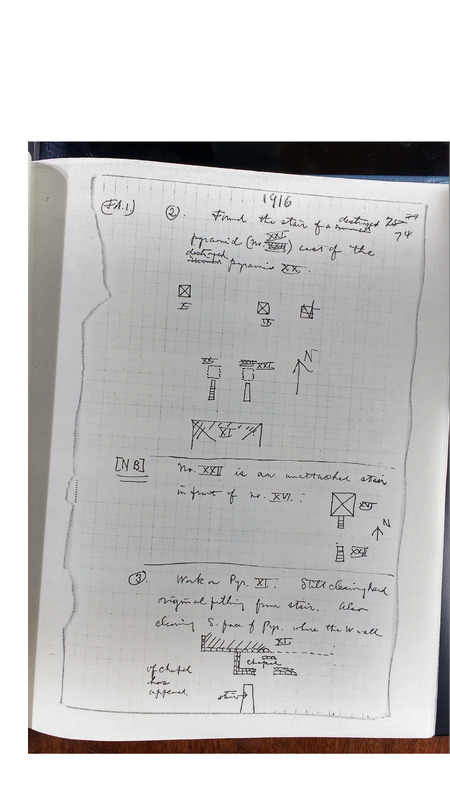 1916
(FA.1) ② Found the stair of a destroyed
74
pyramid (no. XXI) east of the
destroyed pyramid XX.
X IX
N
XX XXI
XI
[NB] No. XXII is an unattached stair
in front of no. XVI.:
XVI
N
XXII
③ Work on Pyr. XI. Still clearing hard
original filling from stair. Also
clearing S. face of Pyr. where the W wall
XI
chapel
of chapel
has
appeared.
stair